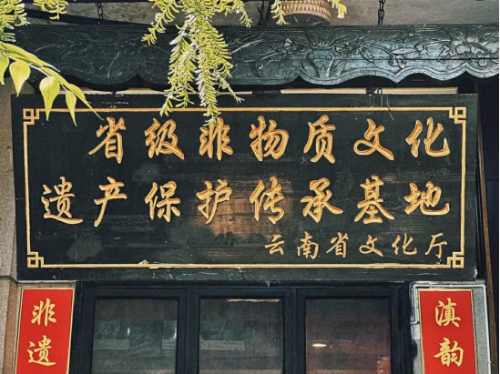 省级非物质文化
遗产保护传承基地
云南省文化厅
非遗
滇韵